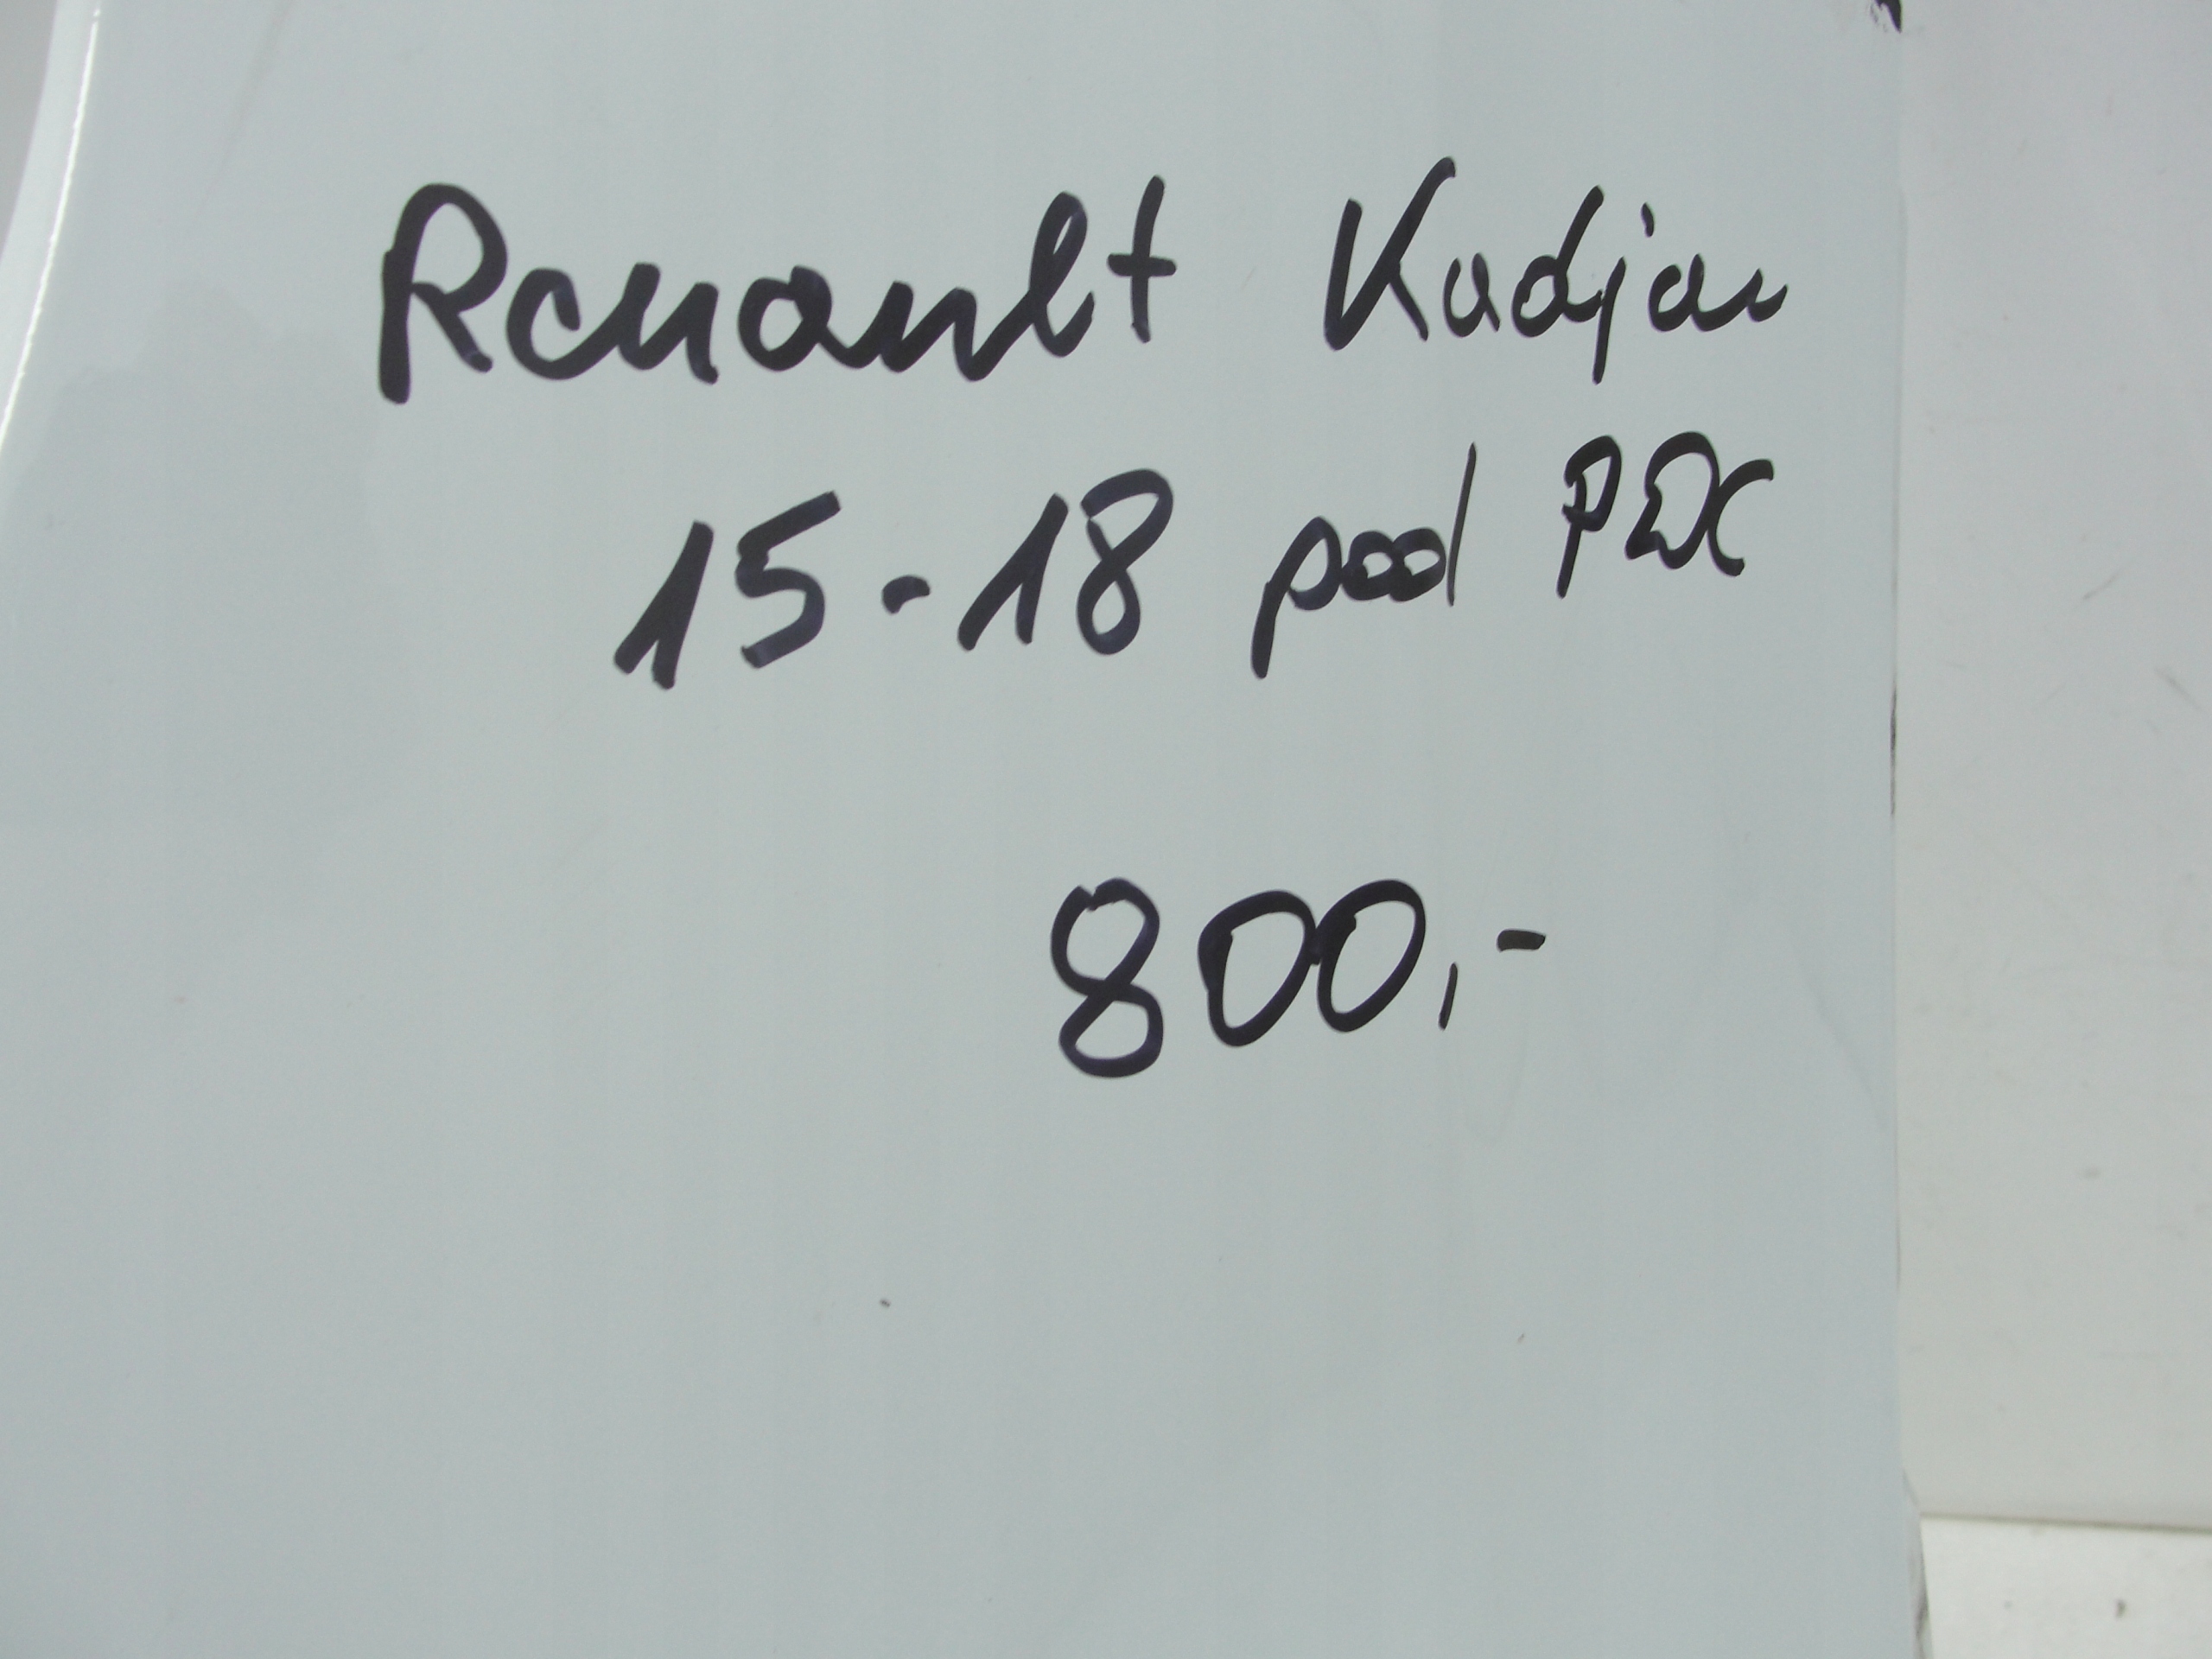 Renault Kadjar
15-18 pod PDC
800,-